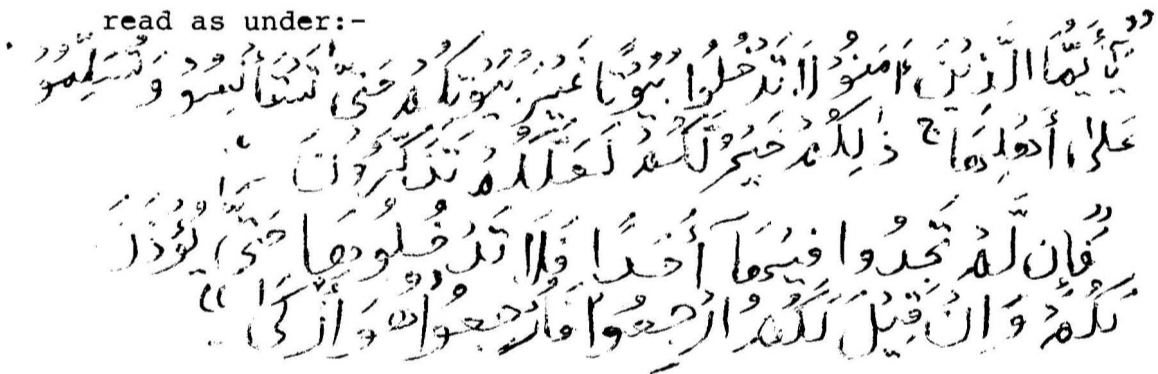 read as under:-
"يَٰٓأَيُّهَا الَّذِيْنَ اٰمَنُوْا لَا تَدْخُلُوْا بُيُوْتًا غَيْرَ بُيُوْتِكُمْ حَتّٰى تَسْتَأْنِسُوْ وَتُسَلِّمُوْ
عَلٰى أَهْلِهَا ج ذٰلِكُمْ خَيْرٌ لَّكُمْ لَعَلَّكُمْ تَذَكَّرُوْنَ
"فَإِن لَّمْ تَجِدُوا فِيْهَآ أَحَدًا فَلَا تَدْخُلُوْهَا حَتّٰى يُؤْذَنَ
لَكُمْ وَاِنْ قِيْلَ لَكُمُ ارْجِعُوْا فَارْجِعُوْا هُوَ اَزْكٰى"